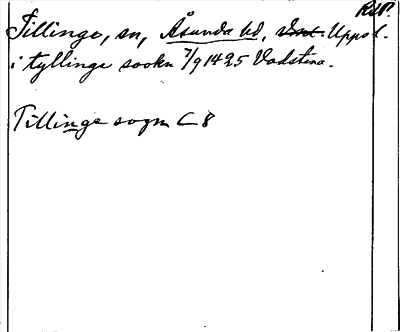 RAP.
Tillinge, sn, Åsunda hd, Uppsl.
i tyllinge sookn 7/9 1425 Vadstena.
Tillinge sogn C 8